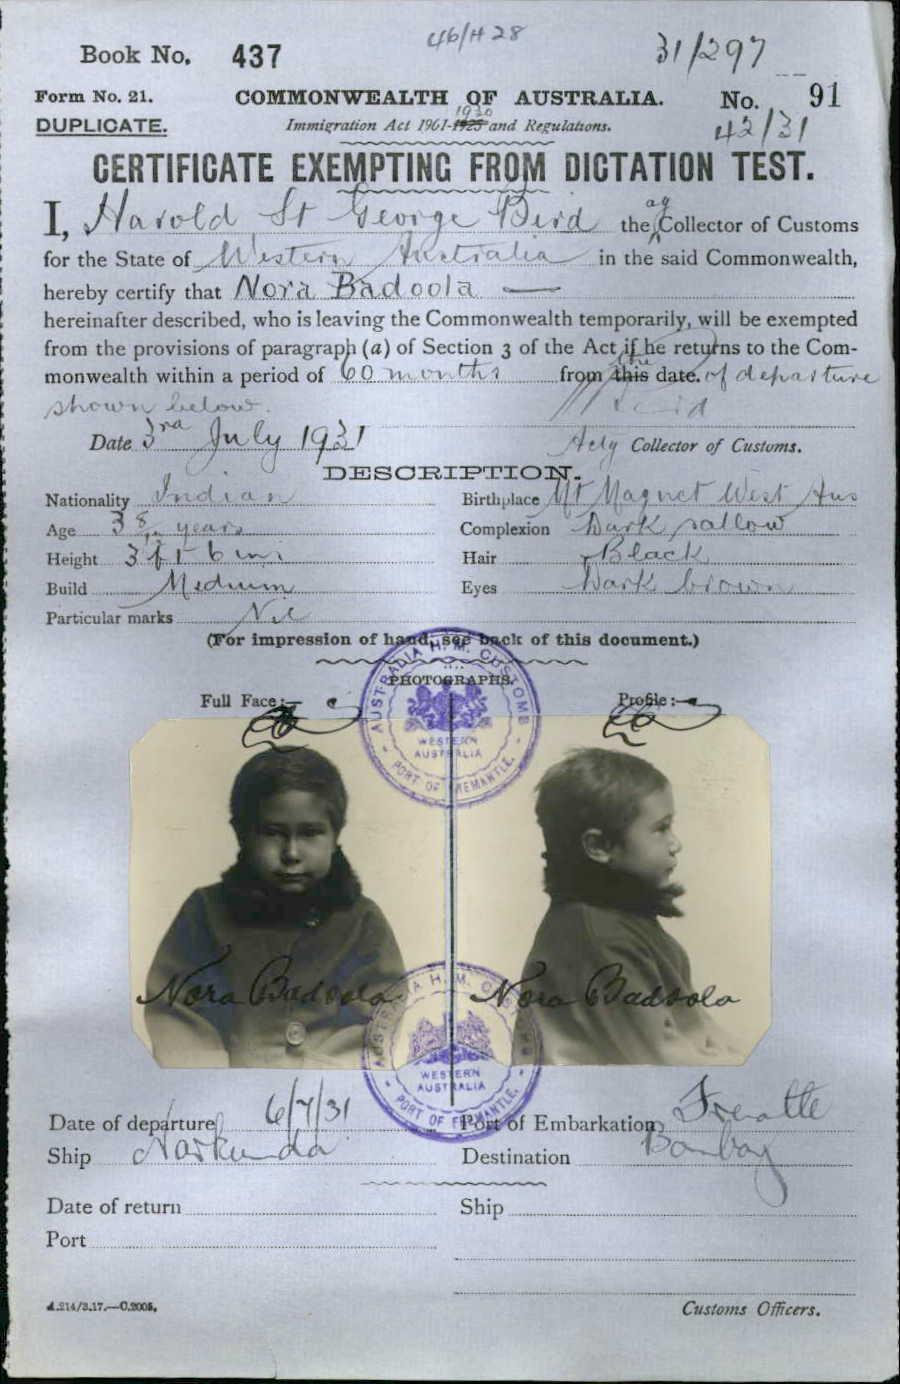 46/H 28
Book No. 437
31/297
Form No. 21.
COMMONWEALTH OF AUSTRALIA.
No. 91
DUPLICATE.
Immigration Act 1961-1925 1930 and Regulations.
42/31
CERTIFICATE EXEMPTING FROM DICTATION TEST.
I, Harold St George Bird the ag Collector of Customs
for the State of Western Australia in the said Commonwealth,
hereby certify that Nora Badoola
hereinafter described, who is leaving the Commonwealth temporarily, will be exempted
from the provisions of paragraph (a) of Section 3 of the Act if he returns to the Com-
monwealth within a period of 60 months from this the date. of departure
shown below.
Date 3rd July 1931
Actg Collector of Customs.
DESCRIPTION.
Nationality Indian
Birthplace Mt Magnet West Aus
Age 3 8/12 years
Complexion Dark sallow
Height 3 ft 6 ins
Hair Black
Build Medium
Eyes Dark brown
Particular marks Nil
(For impression of hand, see back of this document.)
PHOTOGRAPHS.
Full Face:—
Profile:—
AUSTRALIA H. M. CUSTOMS
WESTERN AUSTRALIA
PORT OF FREMANTLE.
Nora Badoola
Nora Badoola
AUSTRALIA H. M. CUSTOMS
WESTERN AUSTRALIA
PORT OF FREMANTLE.
Date of departure 6/7/31
Port of Embarkation Freantle
Ship Narkunda
Destination Bombay
Date of return
Ship
Port
A.214/3.17.—C.2005.
Customs Officers.